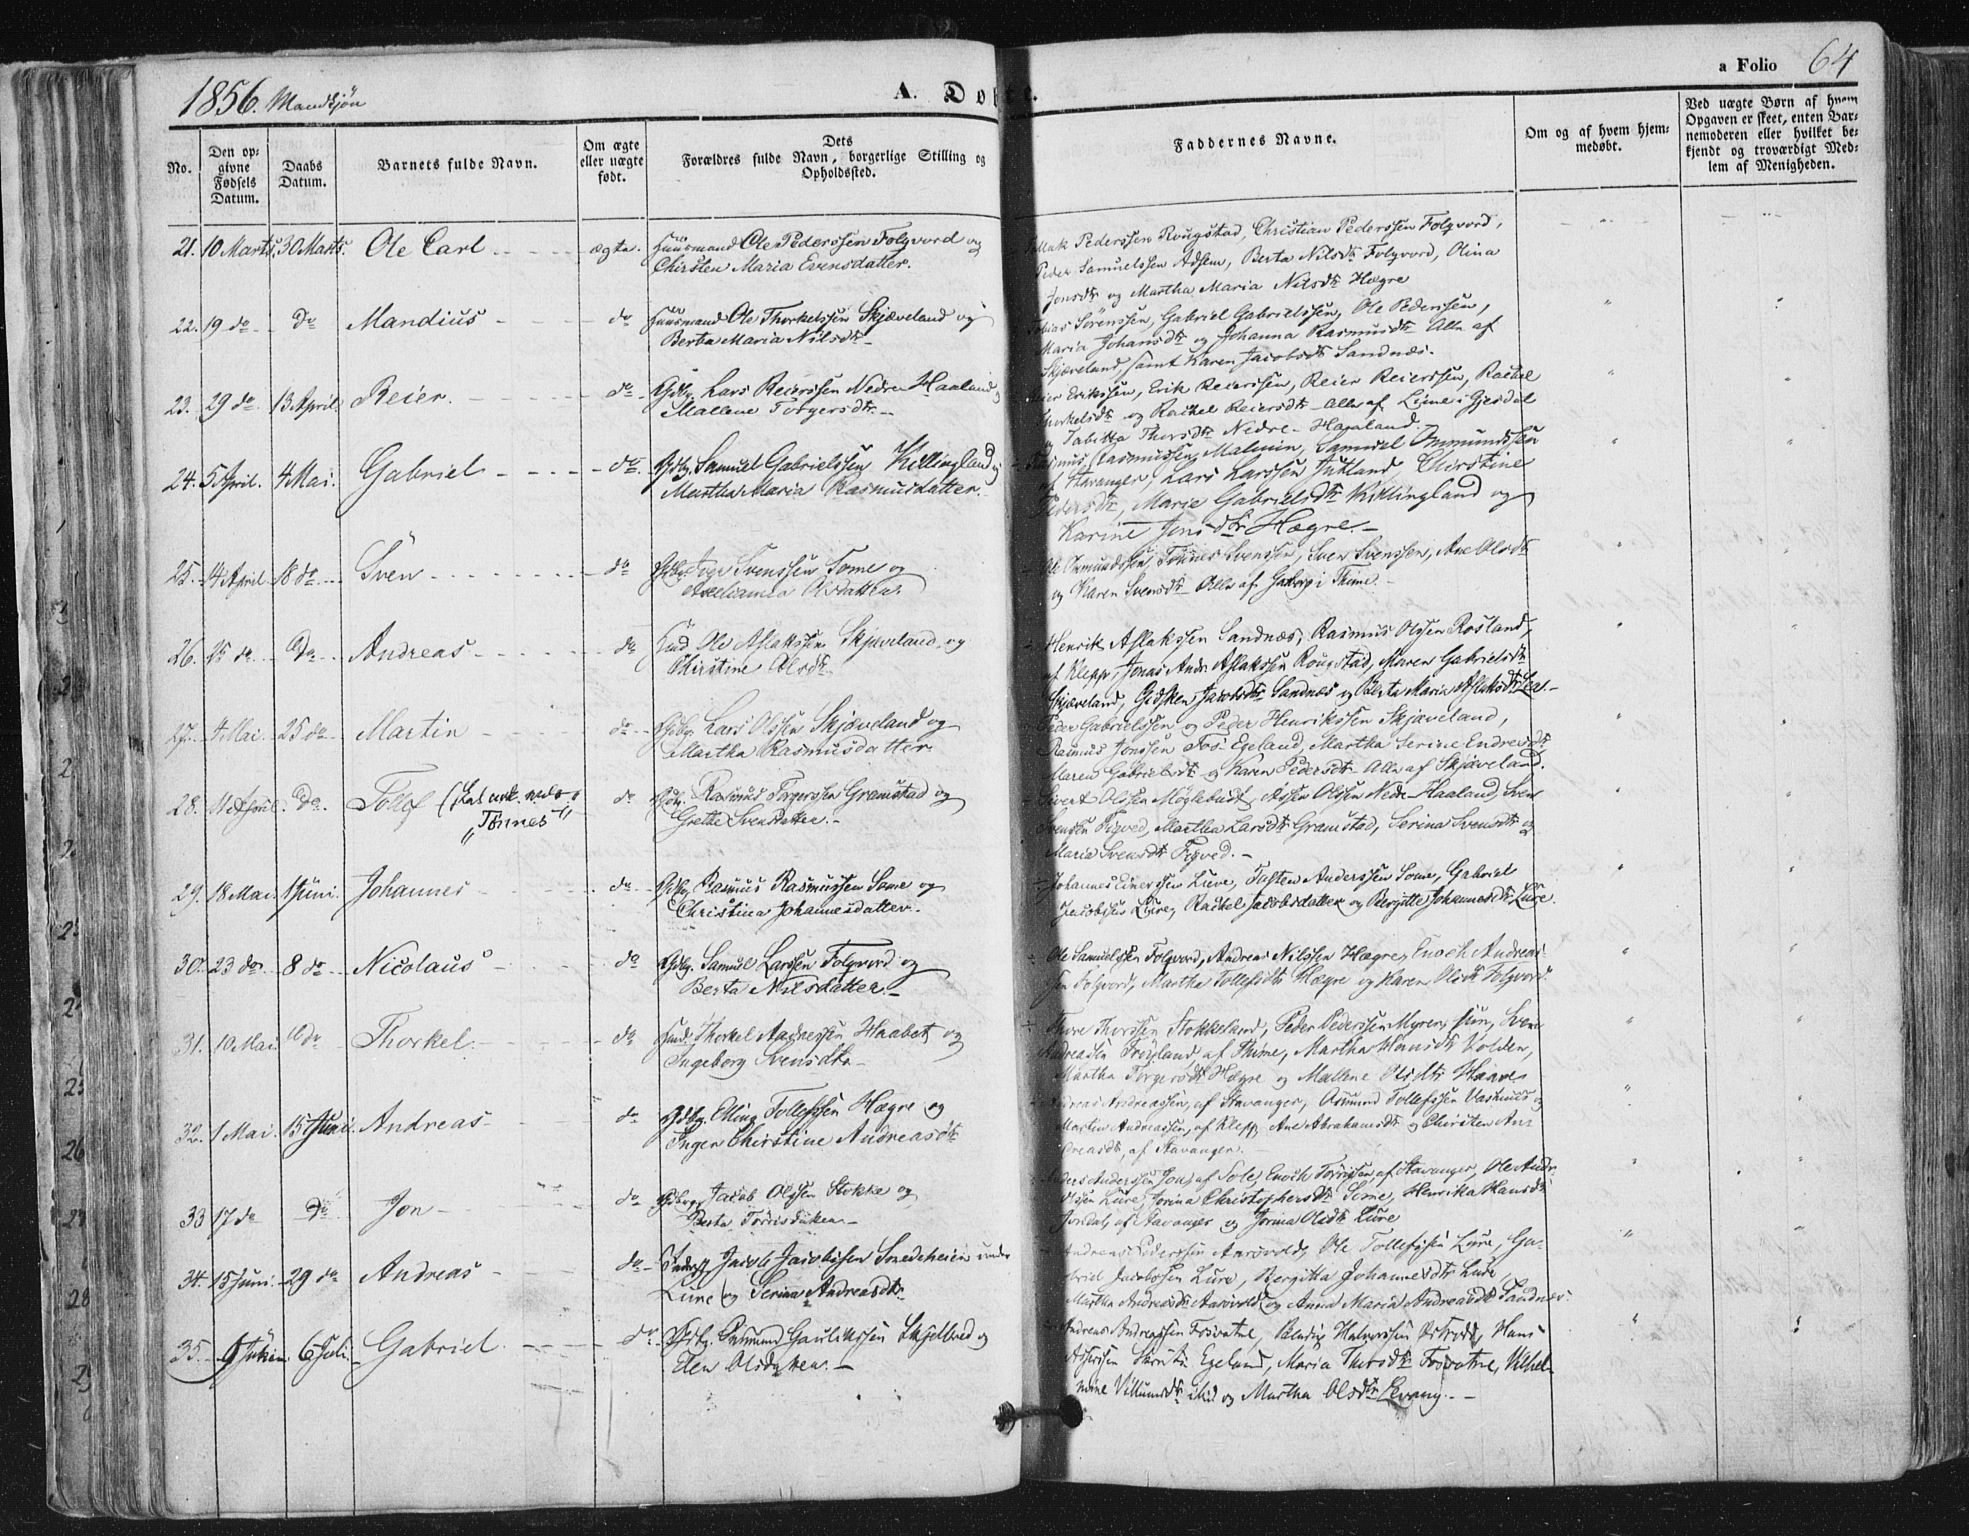 1856. Mandkjön
A. Døbte.
a Folio 64
No.
Den opgivne Fødsels Datum.
Daabs Datum.
Barnets fulde Navn.
Om ægte eller uægte født.
Dets Forældres fulde Navn, borgerlige Stilling og Opholdssted.
Faddernes Navne.
Om og af hvem hjemmedøbt.
Ved uægte Børn af hvem Opgaven er skeet, enten Barnemoderen eller hvilket bekjendt og troværdigt Medlem af Menigheden.
21. 10 Marts. 30 Marts. Ole Carl ægte. Huusmand Ole Pederssen Folgvord og
Chirsten Maria Evensdatter.
Pederssen Rougstad, Christian Pederssen Folgvord,
Peder Samuelssen Adsem, Berta Nilsdtr Folgvord, Olina
Jonsdtr og Martha Maria Nilsdtr Høgre
22. 19 do do Mandius do Huusmand Ole Thorkelssen Skjæveland og
Berta Maria Nilsdtr
Tobias Sörenssen, Gabriel Gabrielssen, Ole Pederssen,
Maria Johansdtr og Johanna Rasmusdtr Alle af
Skjæveland, samt Karen Jacobsdtr Sandnæs.
23. 29 do 13 April. Reier. do Gdbr. Lars Reierssen Nedre Haaland og
Mallene Torgersdtr
Erikssen, Erik Reierssen, Reier Reierssen, Rachel
Thorkelsdtr og Rachel Reiersdtr Alle af Lime i Gjesdal
og Tabitta Thorsdtr Nedre Haaland.
24. 5 April. 4 Mai. Gabriel do Gdbr. Samuel Gabrielssen Killingland og
Martha Maria Rasmusdatter.
Rasmus Rasmussen Malmin, Samuel Ommundssen
af Stavanger, Lars Larssen Jutland, Chirstine
Pedersdtr, Marie Gabrielsdtr Killingland og
Karine Jensdtr Høgre.
25. 14 April. 18 do Sven do Gdbr. Svenssen Some og
Olsdatter.
Ole Ommundssen, Tönnes Svenssen, Sven Svenssen, Ane Olsdtr
og Karen Svensdtr Alle af i Thime.
26. 25 do do Andreas do Huusmd Ole Aslakssen Skjæveland og
Christine Olsdtr
Henrik Aslakssen Sandnæs, Rasmus Olssen Rosland,
af Klepp, Jonas Andr. Aslakssen Rougstad, Maren Gabrielsdtr
Skjæveland, Gidsken Jacobsdtr Sandnæs og Berta Maria Aslaksdtr
27. 4 Mai. 25 do Martin do Gdbr. Lars Olssen Skjæveland og
Martha Rasmusdatter
Peder Gabrielssen og Peder Henrikssen Skjæveland,
Rasmus Jonssen Fos Egeland, Martha Serine Endresdtr,
Maren Gabrielsdtr og Karen Pedersdtr Alle af Skjæveland.
28. April. do. Tollef
"Tönnes" do Gdbr. Rasmus Torgerssen Gramstad og
Grethe Svensdatter.
Sivert Olssen Møglebust, Olssen Nedre Haaland, Sven
Svensen Figved, Martha Larsdtr Gramstad, Serina Svensdtr og
Maria Svensdtr Figved.
29. 18 Mai. 1 Juni. Johannes do Gdbr. Rasmus Rasmussen Some og
Christina Johannesdatter.
Johannes Einerssen Lure, Torsten Anderssen Some, Gabriel
Jacobssen Lure, Rachel Jacobsdatter og Bergitte Johannesdtr Lure.
30. 23 do 8 do Nicolaus do Gdbr. Samuel Larssen Folgvord og
Berta Nilsdatter.
Ole Samuelssen Folgvord, Andreas Nilssen Høgre, Enoch Andreas-
sen Folgvord, Martha Tollefsdtr Høgre og Karen Olsdtr Folgvord
31. 10 Mai. do Thorkel. do Huusmd Thorkel Andreassen Haabet og
Ingeborg Svensdtr
Thore Thorssen Stokkeland, Peder Pederssen Myren, Sven
Andreassen Fröyland af Thime, Martha Hansdtr Volden,
Martha Torgersdtr Høgre og Mallene Olsdtr
32. 1 Mai. 15 Juni. Andreas do Gdbr. Elling Tollefssen Høgre og
Inger Chirstine Andreasdtr
Andreas Andreassen, af Stavanger, Osmund Tollefssen Vashuus og
Martin Andreassen, af Klepp, Ane Abrahamsdtr og Chirsten An-
dreasdtr, af Stavanger.
33 17 do do Jon do Gdbr. Jacob Olssen Stokke og
Berta Torrisdatter
Anders Anderssen Jon, af Sole, Enoch Torrissen af Stavanger, Ole Andr.
Olssen Lure, Jorina Christophersdtr Some, Henrika Hansdtr
af Stavanger og Jorina Olsdtr Lure
34. 15 Juni. 29 do Andreas do Jacob Jacobssen Snedeheien under
Lure og Serina Andreasdtr.
Andreas Pederssen Aarsvold, Ole Tollefssen Lure, Ga-
briel Jacobssen Lure, Bergitta Johannesdtr Lure,
Martha Andreasdtr Aarsvold og Anna Maria Andreasdtr Sandnæs.
35. Juni 6 Juli. Gabriel. do Gdbr. Osmund Gaulikssen Skjelbred og
Elen Olsdatter.
Andreas Andreassen Fosvatne, Halvorssen Østrod, Hans
Asserssen Egeland, Maria Thorsdtr Fosvatne, Vilhel-
mine Villumsdtr ibid og Martha Olsdtr